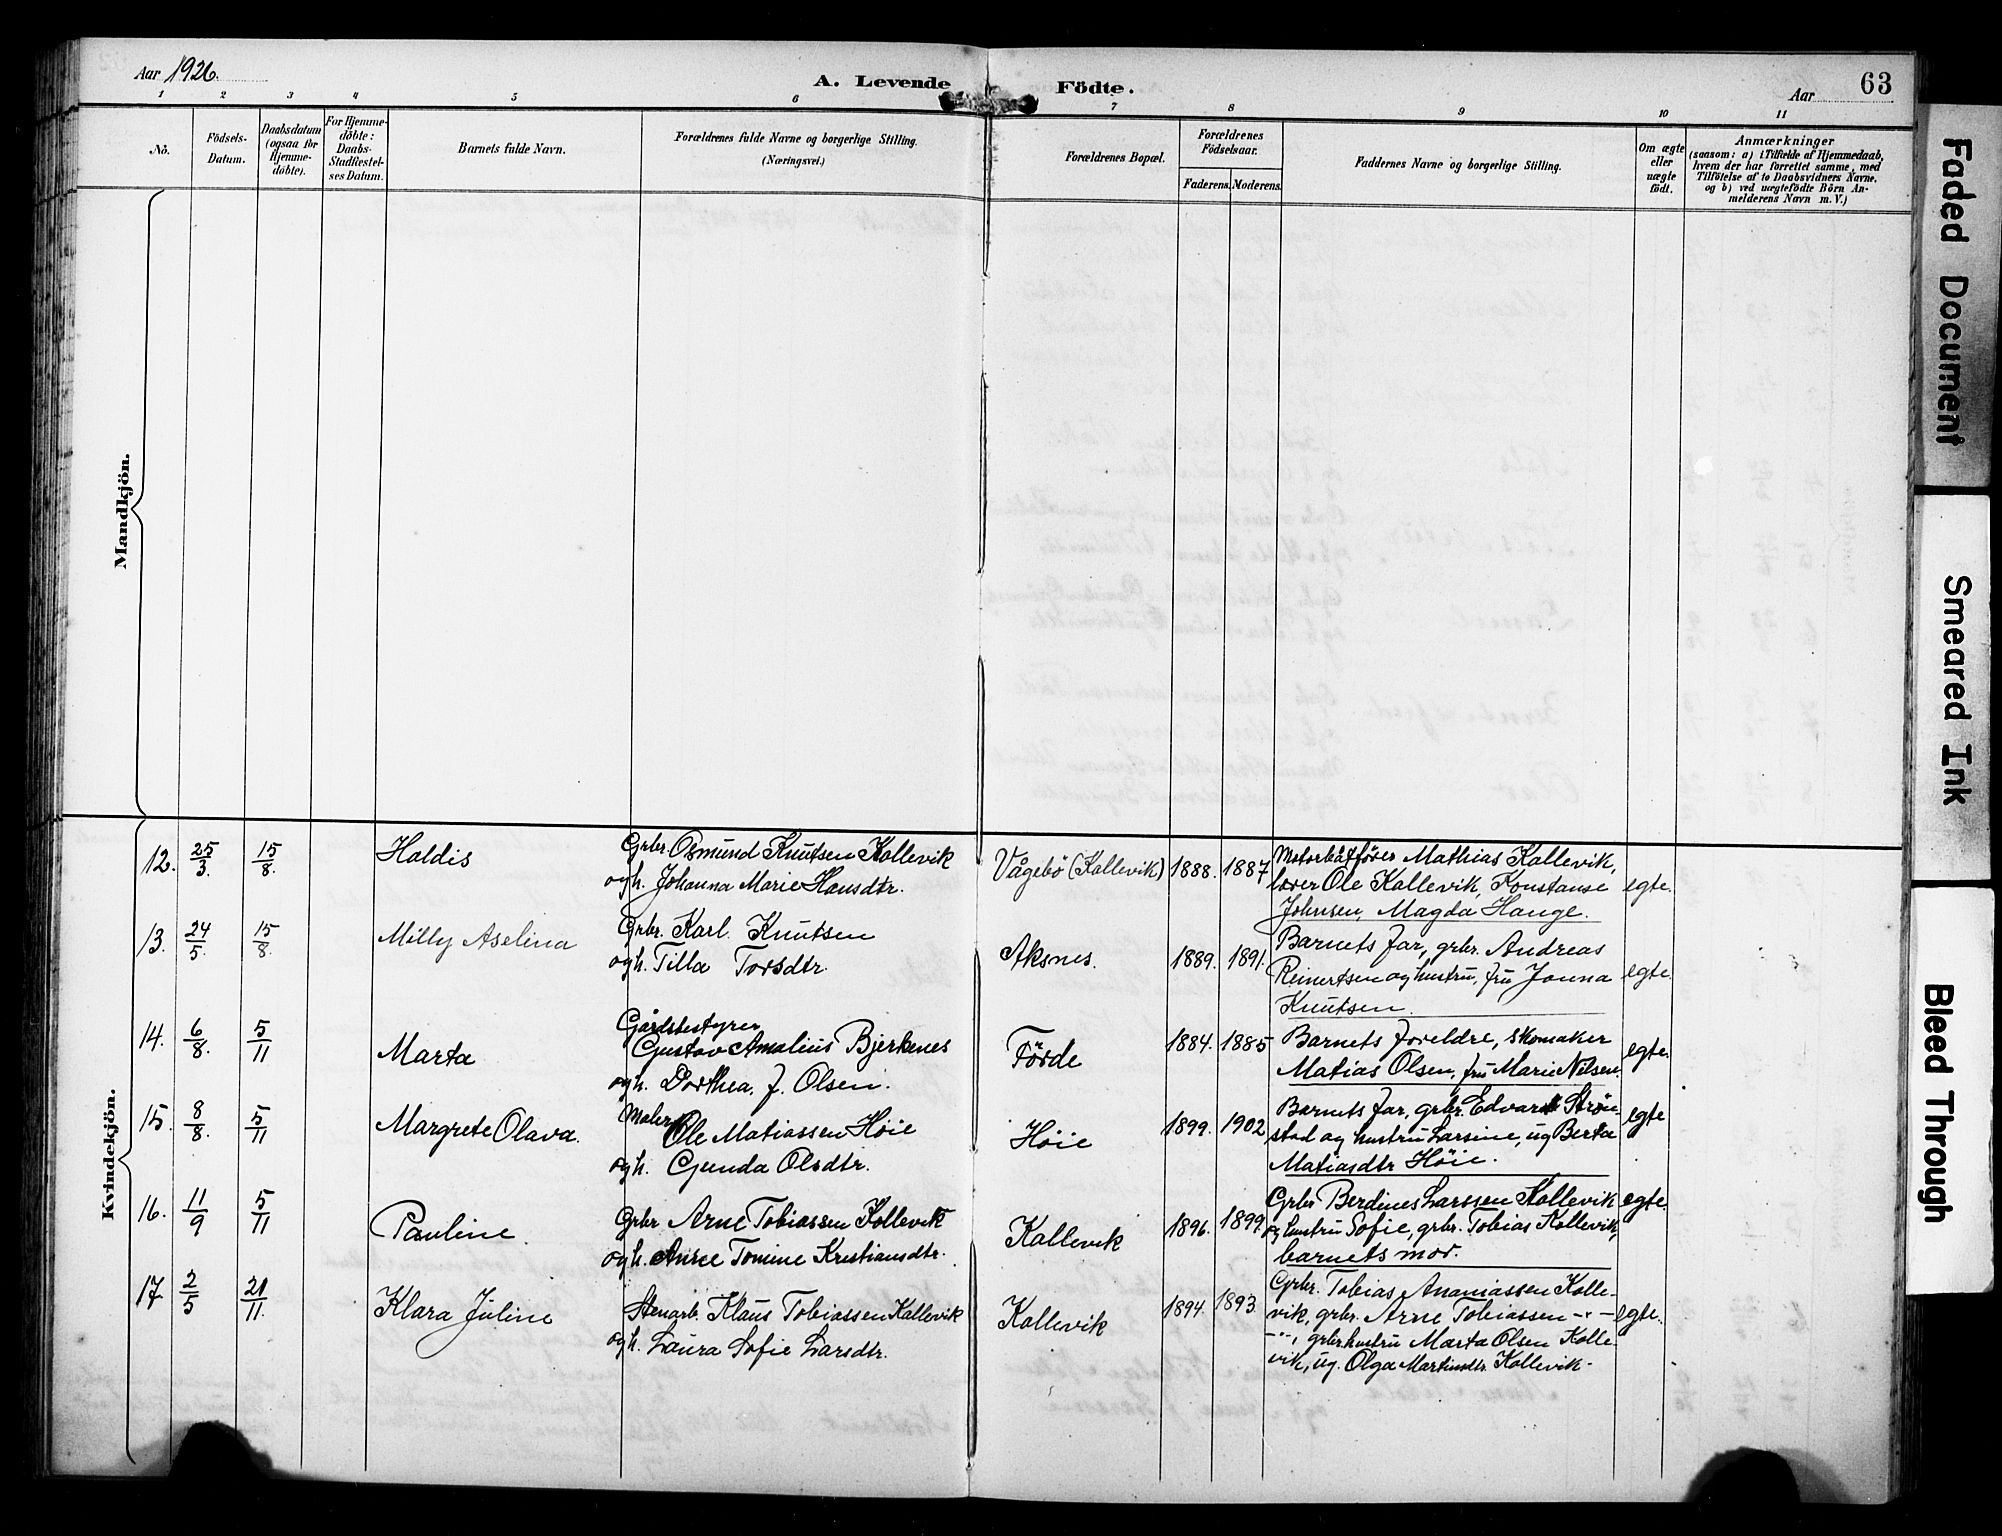 Aar 1926.
A. Levende Födte.
Aar
63
1 2 3 4 5 6 7 8 9 10 11
No.
Födsels-Datum.
Daabsdatum (ogsaa for Hjemme-döbte).
For Hjemme-döbte: Daabs-Stadfæstel-ses Datum.
Barnets fulde Navn.
Forældrenes fulde Navne og borgerlige Stilling.
(Næringsvei.)
Forældrenes Bopæl.
Forældrenes Födselsaar.
Faderens. Moderens.
Faddernes Navne og borgerlige Stilling.
Om ægte eller uægte födt.
Anmærkninger
(saasom: a) i Tilfælde af Hjemmedaab,
hvem der har forrettet samme, med
Tilföielse af to Daabsvidners Navne.
og b) ved uægtefödte Börn An-
melderens Navn m. V.)
Mandkjön.
Kvindekjön.
12. 25/3. 15/8. Haldis
Grbr. Osmund Knutsen Kallevik
ogh. Johanna Marie Hansdtr.
Vågebö (Kallevik) 1888. 1887
Motorbåtförer Mathias Kallevik,
Ole Kallevik, Konstanse
Johnsen, Magda Hauge.
egte.
13. 24/5. 15/8. Milly Aselina
Grbr. Karl Knutsen
ogh. Tilla Torsdtr.
Aksnes. 1889. 1891.
Barnets far, grbr. Andreas
Reinertsen og hustru, fru Jonna
Knutsen.
egte.
14. 6/8. 5/11 Marta
Gårdsbestyrer
Gustav Amalius Bjerkenes
ogh. Dorthea, f. Olsen.
Förde 1884. 1885
Barnets foreldre, skomaker
Matias Olsen, fru Marie Nilsen.
egte.
15. 8/8. 5/11 Margrete Olava.
Maler
Ole Matiassen Höie
ogh. Gunda Olsdtr.
Höie 1899. 1902
Barnets far, grbr. Edvard Strön-
stad og hustru Larsine, ug Berta
Matiasdtr Höie.
egte
16. 11/9 5/11 Pauline.
Grbr Arne Tobiassen Kallevik
ogh. Anne Tomine Kristiansdtr.
Kallevik 1896. 1899
Grbr Berdines Larssen Kallevik
og hustru Sofie, grbr. Tobias Kallevik,
barnets mor.
egte.
17 2/5 21/11. Klara Juline
Stenarb. Klaus Tobiassen Kallevik
ogh. Laura Sofie Larsdtr.
Kallevik 1894. 1893.
Grbr. Tobias Ananiassen Kalle-
vik, grbr. Arne Tobiassen -"-
-"-, grbr.hustru Marta Olsen Kalle-
vik, ug. Olga Martinsdtr. Kallevik.
egte.
Faded Document
Smeared Ink
Bleed Through